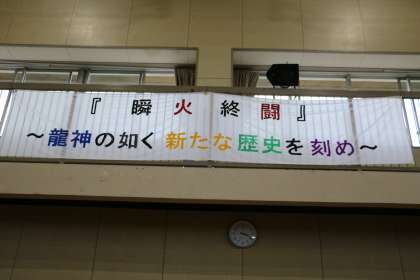 『瞬火終闘』
～龍神の如く新たな歴史を刻め～